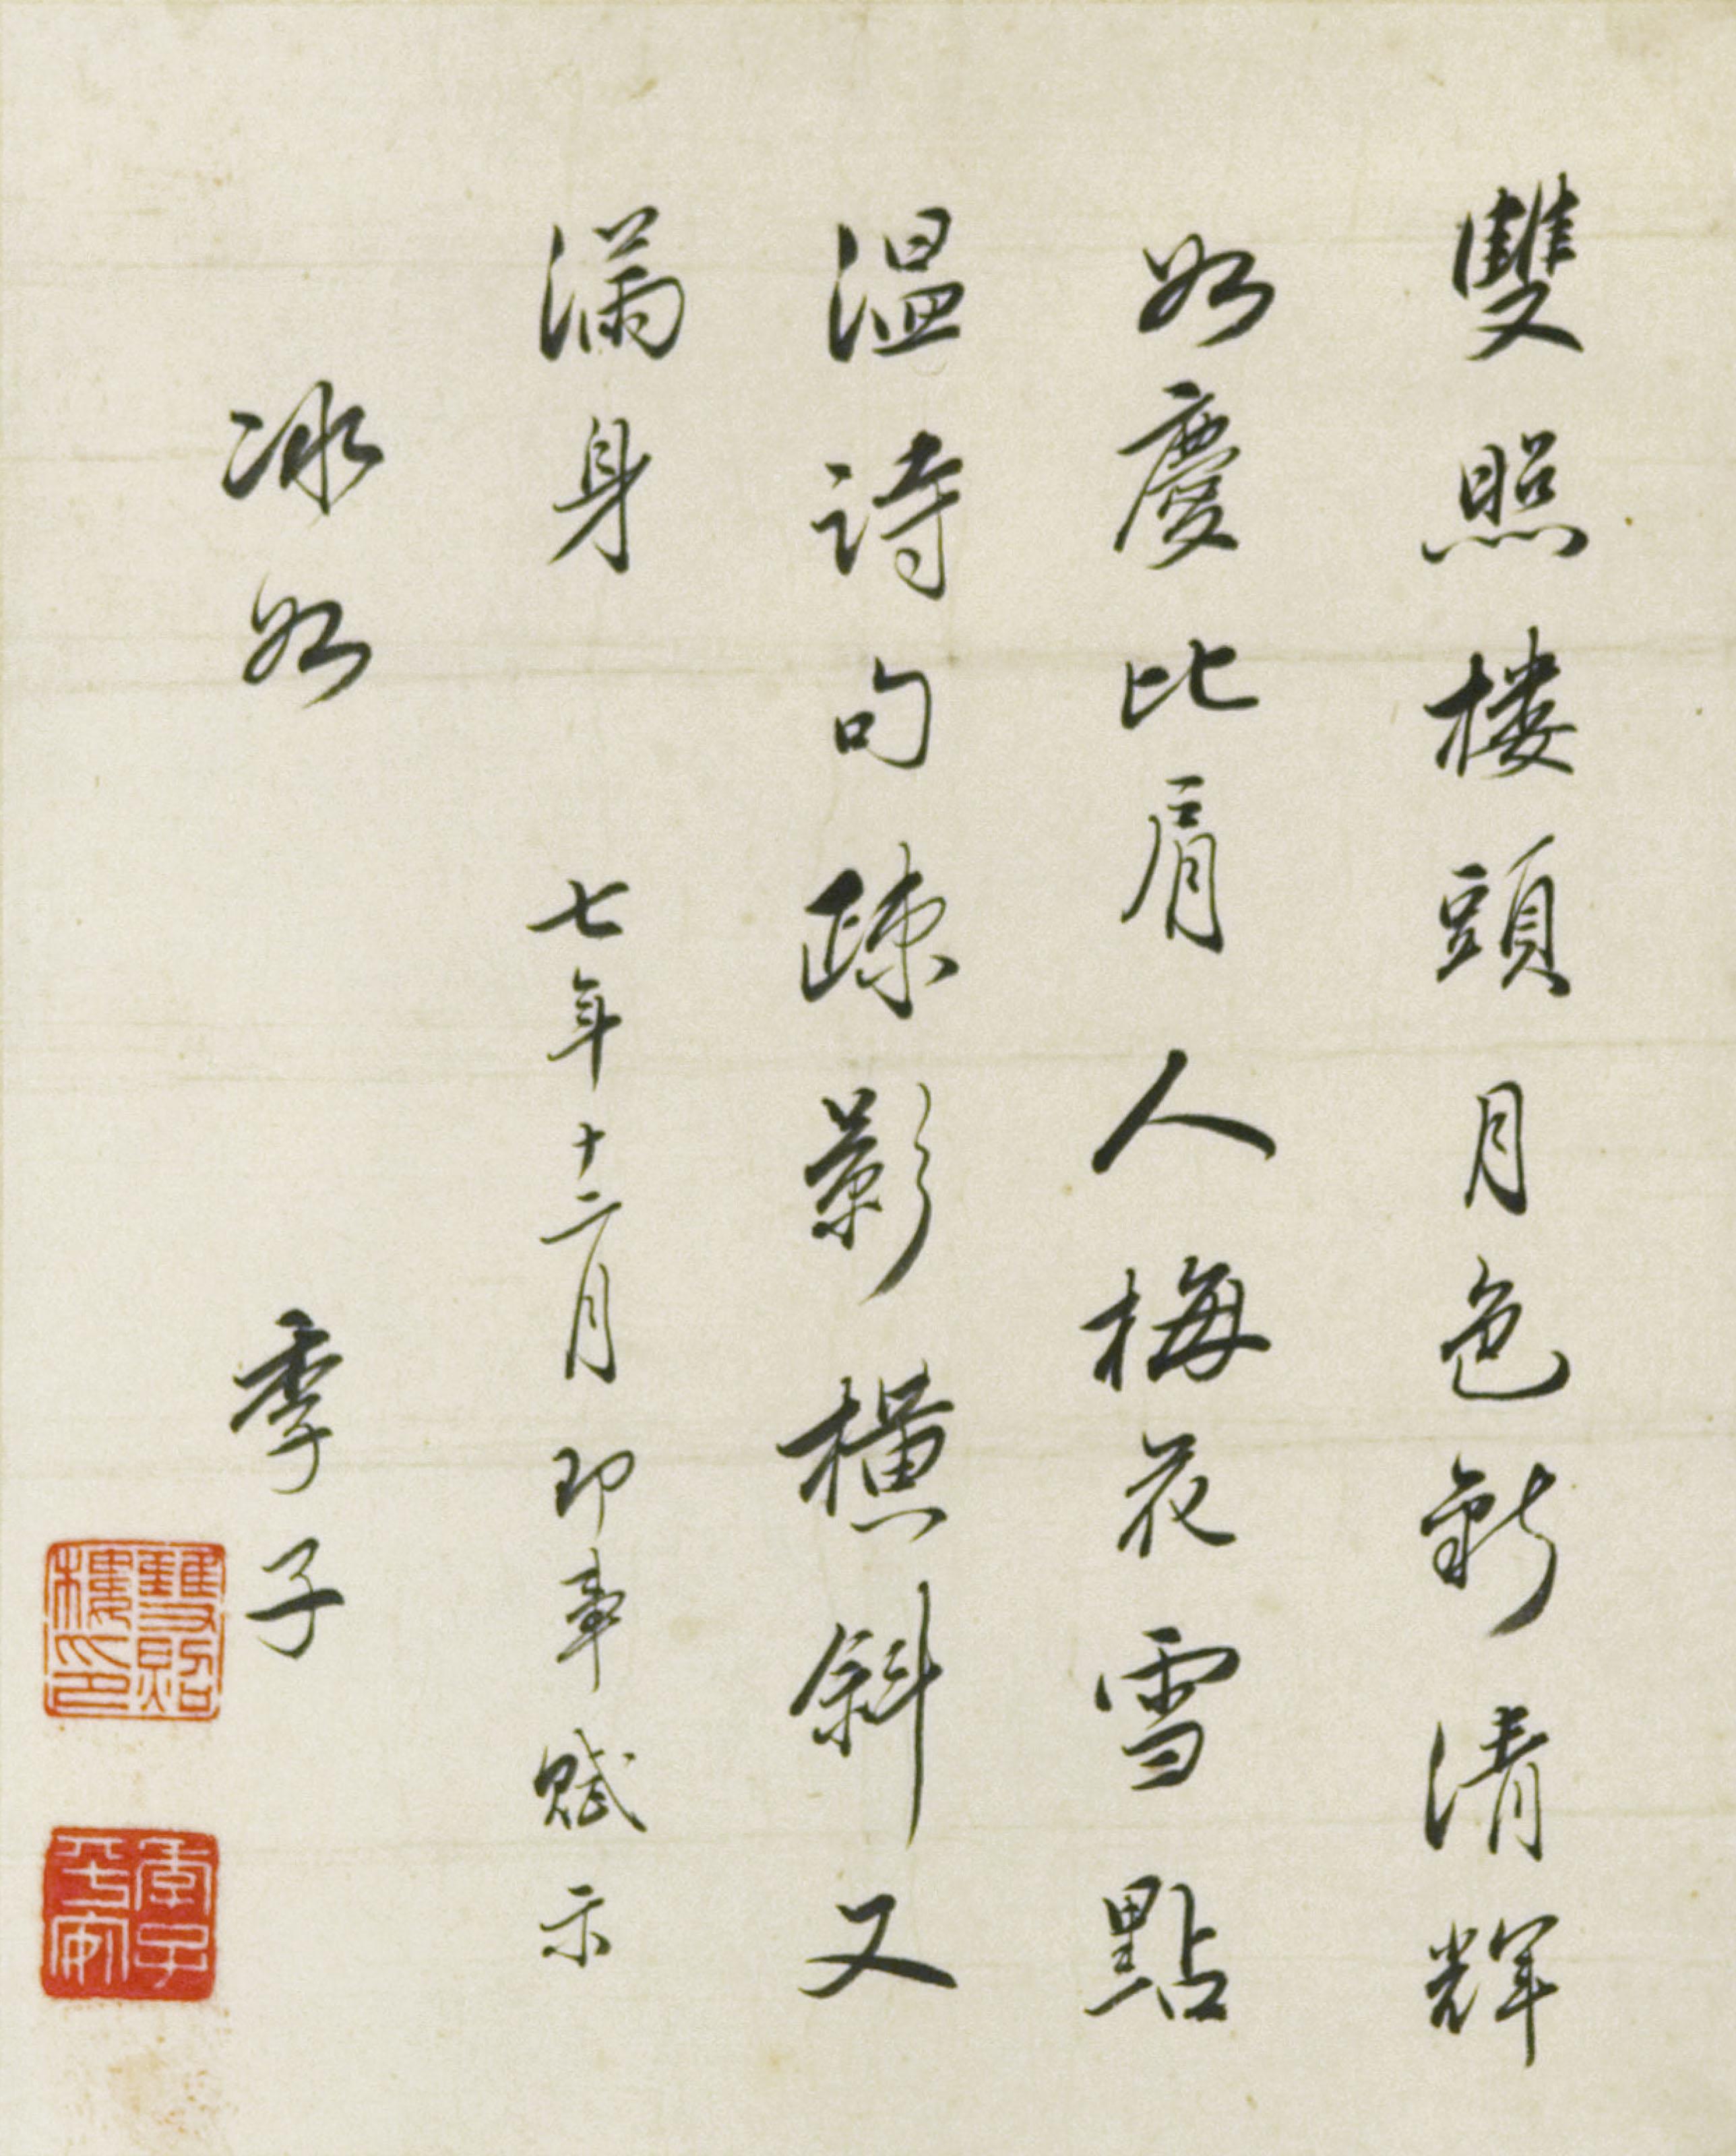 雙照樓頭月色新清輝
如慶比肩人梅花雪點
溫詩句疎影橫斜又
滿身
七年十二月即事賦示
冰如
季子
雙照樓印
季子平安